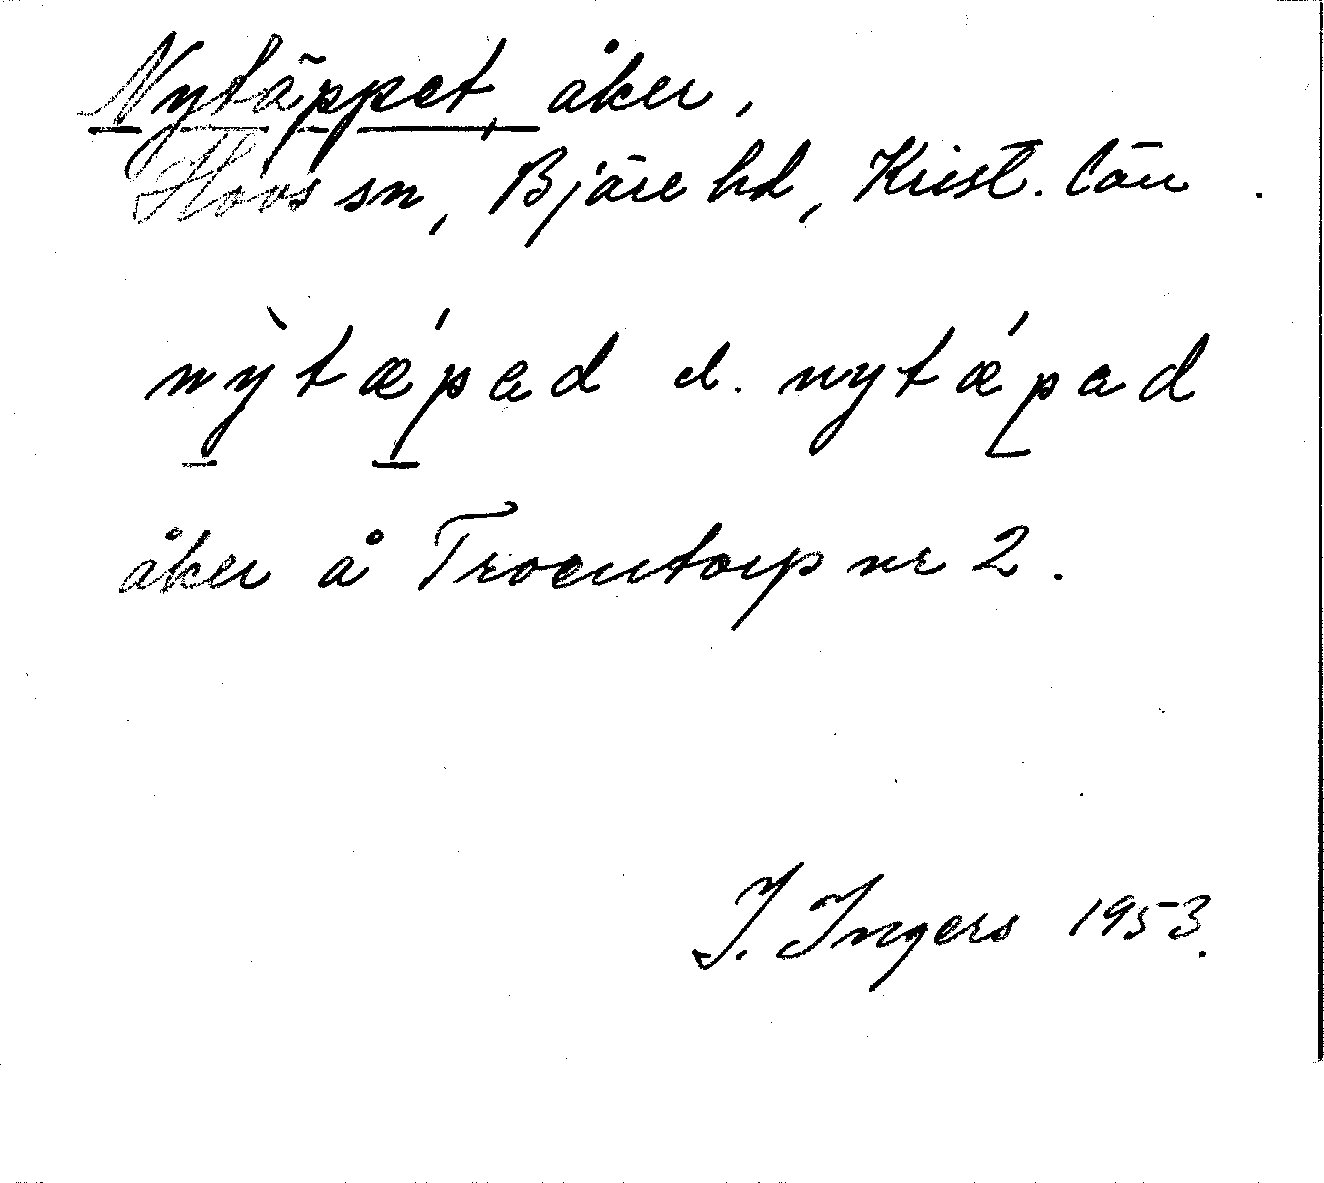 Nytäppet, åker,
Hovs sn, Bjäre hd, Krist. län.
nỳtǽpad el. nytǽpad
åker å Troentorp nr 2.
I. Ingers 1953.